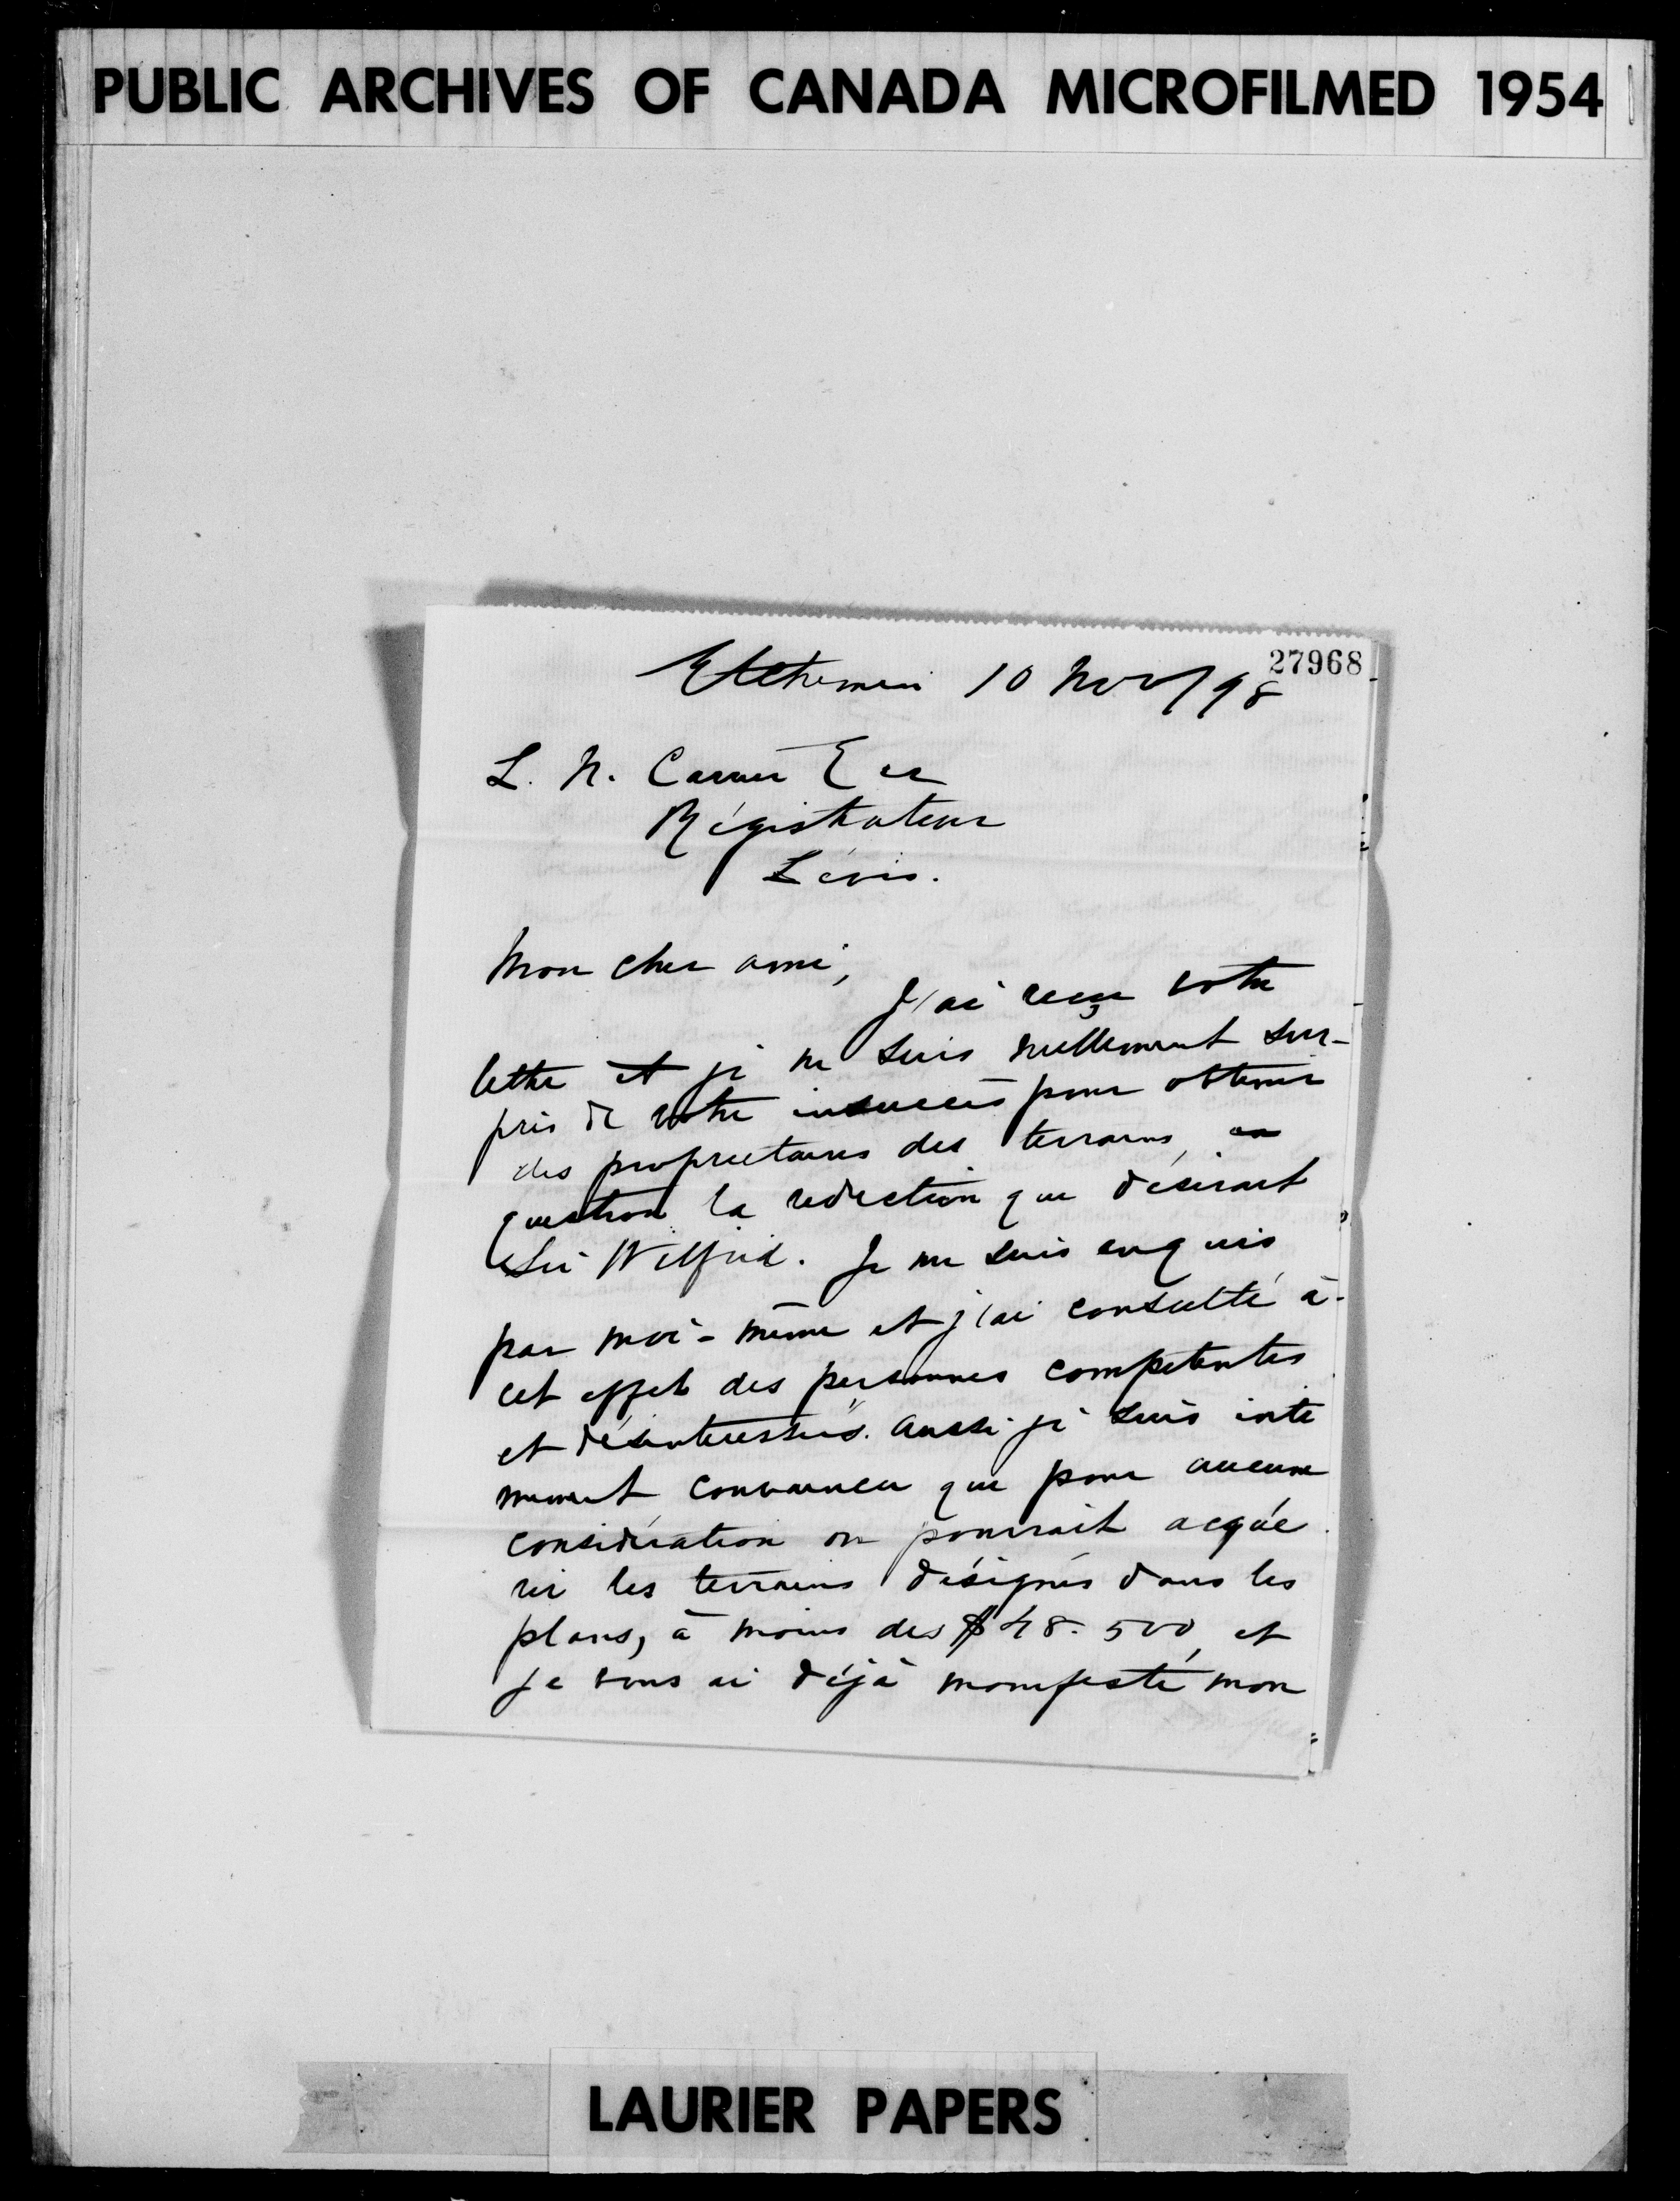 PUBLIC ARCHIVES OF CANADA MICROFILMED 1954
27968
Etchemin 10 Nov/98
L. N. Carrier Ecr
Régistrateur
Lévis.
Mon cher ami,
J'ai reçu votre
lettre et je ne suis nullement sur-
pris de votre insuccès pour obtenir
des proprietaires des terrains en
question la reduction que désirait
Sir Wilfrid. Je me suis enquis
par moi-même et j'ai consulté à
cet effet des personnes competentes
et désinteressées. aussi je suis inti
mement convaincu que pour aucune
considération on pourrait acqué
rir les terrains désignés dans les
plans, à moins des $48.500, et
je vous ai déjà manifesté mon
LAURIER PAPERS